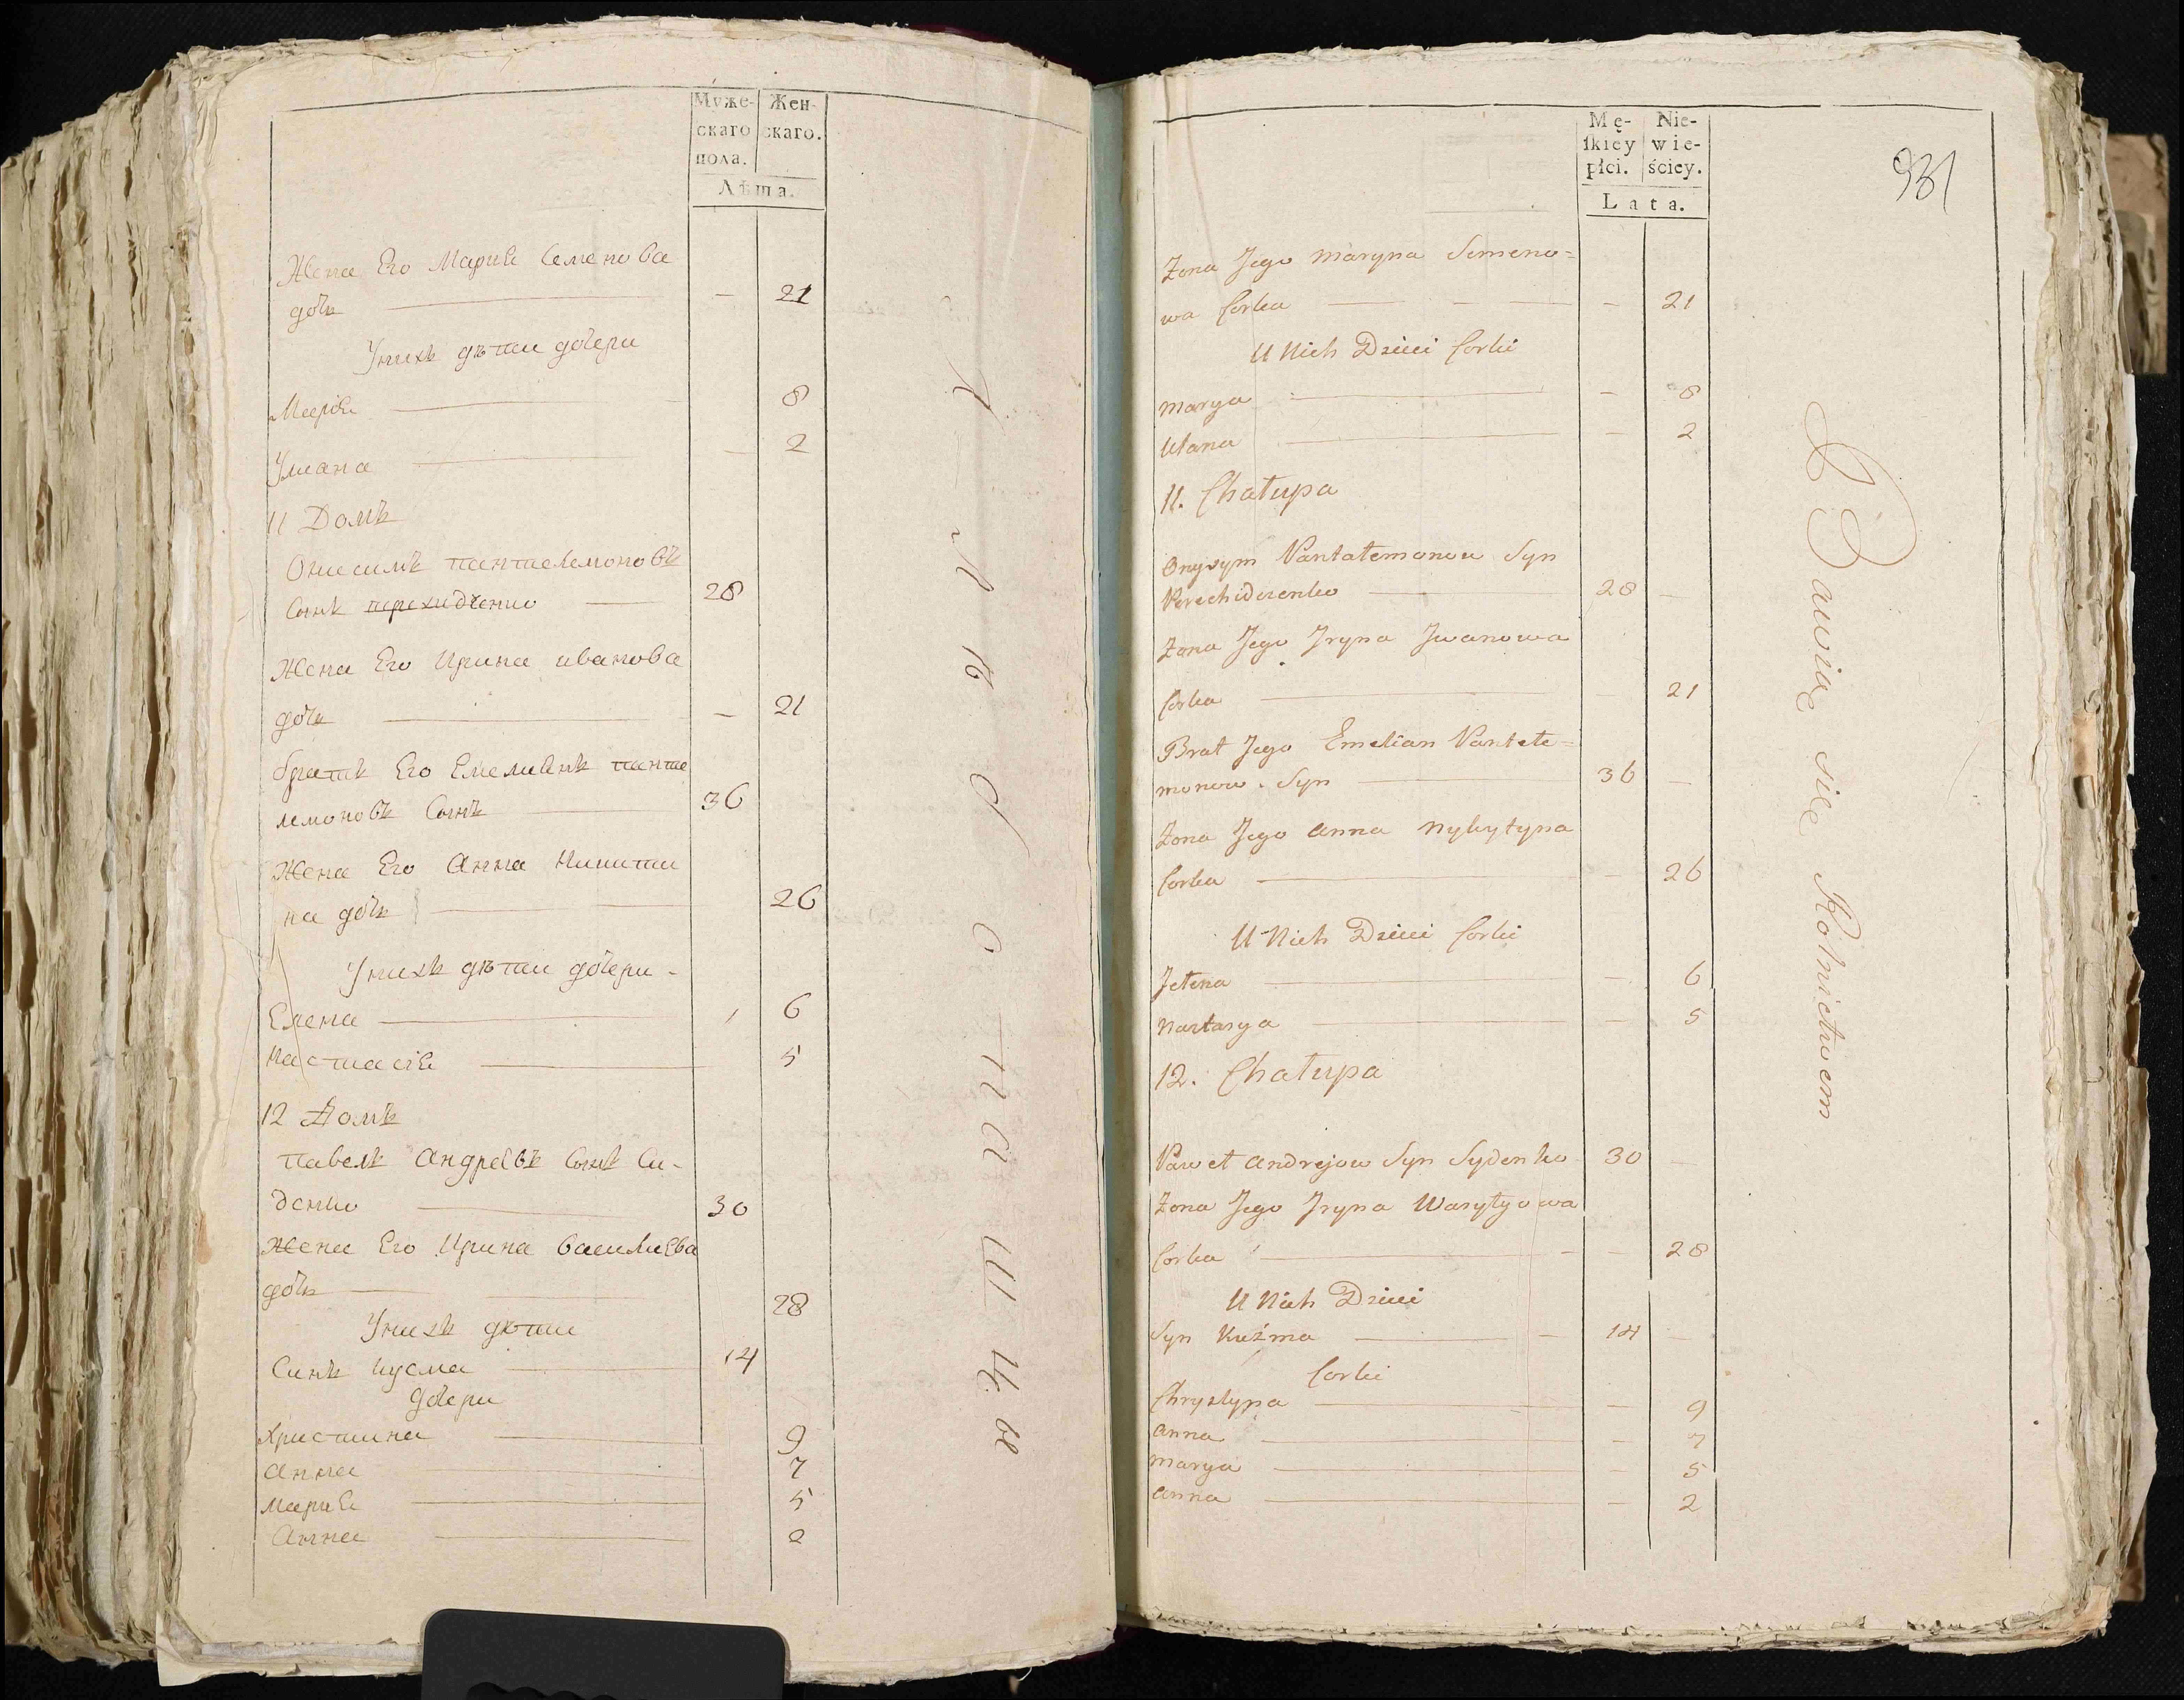 Муже- Жен-
скаго скаго.
пола.
Лѣта.
Жена Его Мария Семенова
дочь — 21
У нихъ дѣти дочери
Мария 8
Улиана — 2
11 Домъ
Онисимъ пантелемоновъ
Сынъ перехидченко 28
Жена Его Ирина иванова
дочь — 21
братъ Его Емелианъ панте
лемоновъ Сынъ 36
Жена Его Анна Никити
на дочь 26
У нихъ дѣти дочери
Елена 6
Настасія 5
12 Домъ
павелъ Андреевъ Сынъ Си-
денко 30
Жена Его Ирина Василиева
дочь 28
У нихъ дѣти
Синъ кусма 14
дочери
Христина 9
Анна 7
Мария 5
Анна 2
Хлѣбопашцы
Mę- Nie-
ſkiey wie-
płci. ściey.
Lata.
931
Żona Jego Maryna Semeno=
wa Corka — 21
U Nich Dzieci Corki
Marya — 8
Ulana — 2
11. Chałupa
Onysym Pantałemonow Syn
Perechidczenko 28 —
Żona Jego Iryna Iwanowa
Corka — 21
Brat Jego Emelian Pantele=
monow Syn 36 —
Żona Jego Anna Nykytyna
Corka — 26
U Nich Dzieci Corki
Jełena — 6
Nastasya — 5
12. Chałupa
Paweł Andrejow Syn Sydenko 30 —
Żona Jego Iryna Wasylyowa
Corka — 28
U Nich Dzieci
Syn Kuźma 14 —
Corki
Chrystyna — 9
Anna — 7
Marya — 5
Anna — 2
Bawią się Rolnictwem